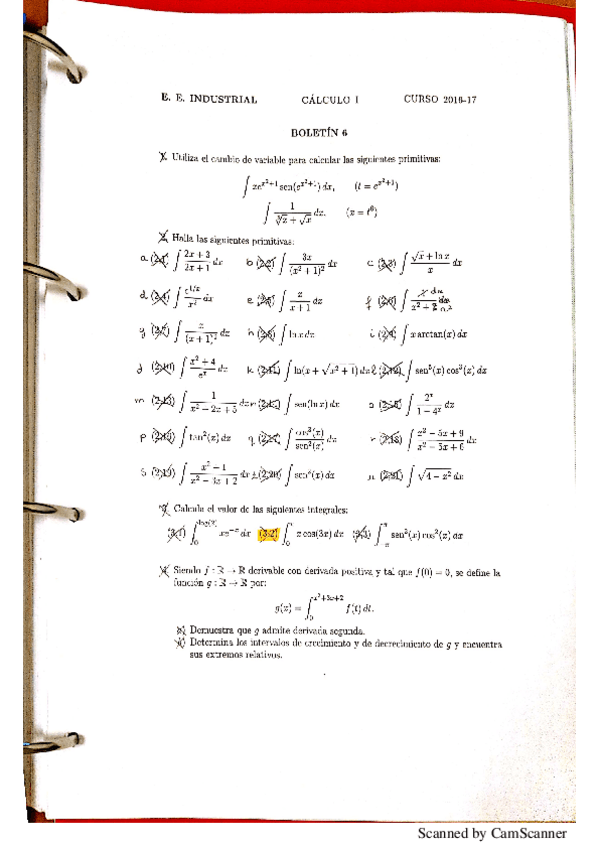 E. E. INDUSTRIAL CÁLCULO I CURSO 2016-17
BOLETÍN 6
Utiliza el cambio de variable para calcular las siguientes primitivas:
∫ xe^{x²+1} sen(e^{x²+1}) dx, (t = e^{x²+1})
∫ 1/(∛x + √x) dx, (x = t⁶)
2. Halla las siguientes primitivas:
a (2.1) ∫ (2x + 3)/(2x + 1) dx b (2.2) ∫ 3x/(x² + 1)² dx c (2.3) ∫ (√x + ln x)/x dx
d (2.4) ∫ e^{1/x}/x² dx e (2.5) ∫ x/(x + 1) dx f (2.6) ∫ dx
g (2.7) ∫ x/(x + 1)² dx h (2.8) ∫ ln x dx i (2.9) ∫ x arctan(x) dx
j (2.10) ∫ (x² + 4)/eˣ dx k (2.11) ∫ ln(x + √(x² + 1)) dx l (2.12) ∫ sen⁵(x) cos³(x) dx
m (2.13) ∫ 1/(x² − 2x + 5) dx n ∫ sen(ln x) dx o (2.15) ∫ 2ˣ/(1 − 4ˣ) dx
p (2.16) ∫ tan²(x) dx q (2.17) ∫ cos³(x)/sen²(x) dx r (2.18) ∫ (x² − 5x + 9)/(x² − 5x + 6) dx
s (2.19) ∫ dx t (2.20) ∫ dx u (2.21) ∫ √(4 − x²) dx
Calcula el valor de las siguientes integrales:
(3.1) ∫ xe^{−x} dx (3.2) ∫ x cos(3x) dx (3.3) ∫ sen²(x) cos²(x) dx
Siendo f : ℝ → ℝ derivable con derivada positiva y tal que f(0) = 0, se define la
función g : ℝ → ℝ por:
g(x) = ∫₀^{x²+3x+2} f(t) dt.
Demuestra que g admite derivada segunda.
Determina los intervalos de crecimiento y de decrecimiento de g y encuentra
sus extremos relativos.
Scanned by CamScanner